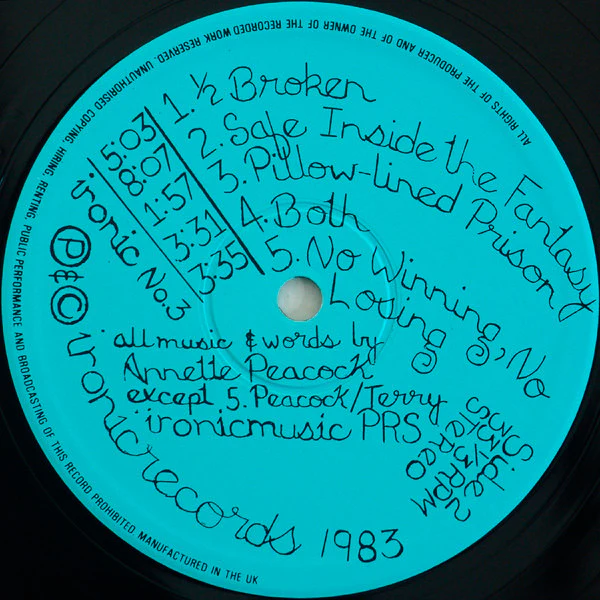 ALL RIGHTS OF THE PRODUCER AND OF THE OWNER OF THE RECORDED WORK RESERVED. UNAUTHORISED COPYING, HIRING, RENTING, PUBLIC PERFORMANCE AND BROADCASTING OF THIS RECORD PROHIBITED. MANUFACTURED IN THE UK
1. ½ Broken
2. Safe Inside the Fantasy
3. Pillow-lined Prison
4. Both
5. No Winning, No
Losing
5:03
8:07
1:57
3:31
3:35
ironic No.3
all music & words by
Annette Peacock
except 5. Peacock/Terry
ironicmusic PRS
Side 2
33 1/3 RPM
STEREO
℗ & © ironic records 1983